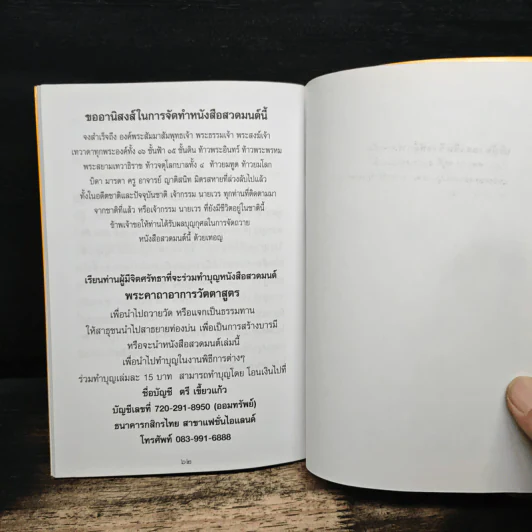 ขออานิสงส์ในการจัดทำหนังสือสวดมนต์นี้
จงสำเร็จถึง องค์พระสัมมาสัมพุทธเจ้า พระธรรมเจ้า พระสงฆ์เจ้า
เทวดาทุกพระองค์ทั้ง ๑๖ ชั้นฟ้า ๑๕ ชั้นดิน ท้าวพระอินทร์ ท้าวพระพรหม
พระสยามเทวาธิราช ท้าวจตุโลกบาลทั้ง ๔ ท้าวยมทูต ท้าวยมโลก
บิดา มารดา ครู อาจารย์ ญาติสนิท มิตรสหายที่ล่วงลับไปแล้ว
ทั้งในอดีตชาติและปัจจุบันชาติ เจ้ากรรม นายเวร ทุกท่านที่ติดตามมา
จากชาติที่แล้ว หรือเจ้ากรรม นายเวร ที่ยังมีชีวิตอยู่ในชาตินี้
ข้าพเจ้าขอให้ท่านได้รับผลบุญกุศลในการจัดถวาย
หนังสือสวดมนต์นี้ ด้วยเทอญ
เรียนท่านผู้มีจิตศรัทธาที่จะร่วมทำบุญหนังสือสวดมนต์
พระคาถาอาการวัตตาสูตร
เพื่อนำไปถวายวัด หรือแจกเป็นธรรมทาน
ให้สาธุชนนำไปสาธยายท่องบ่น เพื่อเป็นการสร้างบารมี
หรือจะนำหนังสือสวดมนต์เล่มนี้
เพื่อนำไปทำบุญในงานพิธีการต่างๆ
ร่วมทำบุญเล่มละ 15 บาท สามารถทำบุญโดย โอนเงินไปที่
ชื่อบัญชี ตรี เขี้ยวแก้ว
บัญชีเลขที่ 720-291-8950 (ออมทรัพย์)
ธนาคารกสิกรไทย สาขาแฟชั่นไอแลนด์
โทรศัพท์ 083-991-6888
๖๒